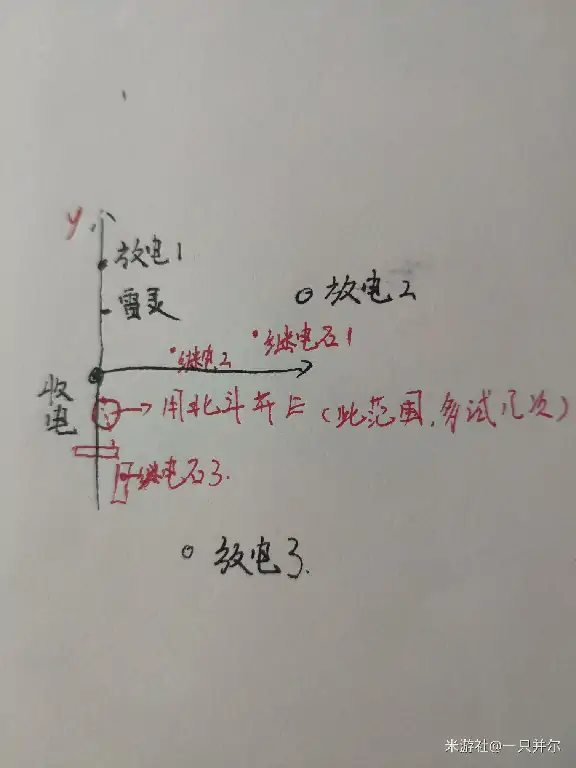 y
放电1
雷灵
放电2
继电石1
继电2
收电
用北斗开后(此范围,多试几次)
继电石3.
放电3.
米游社@一只并尔